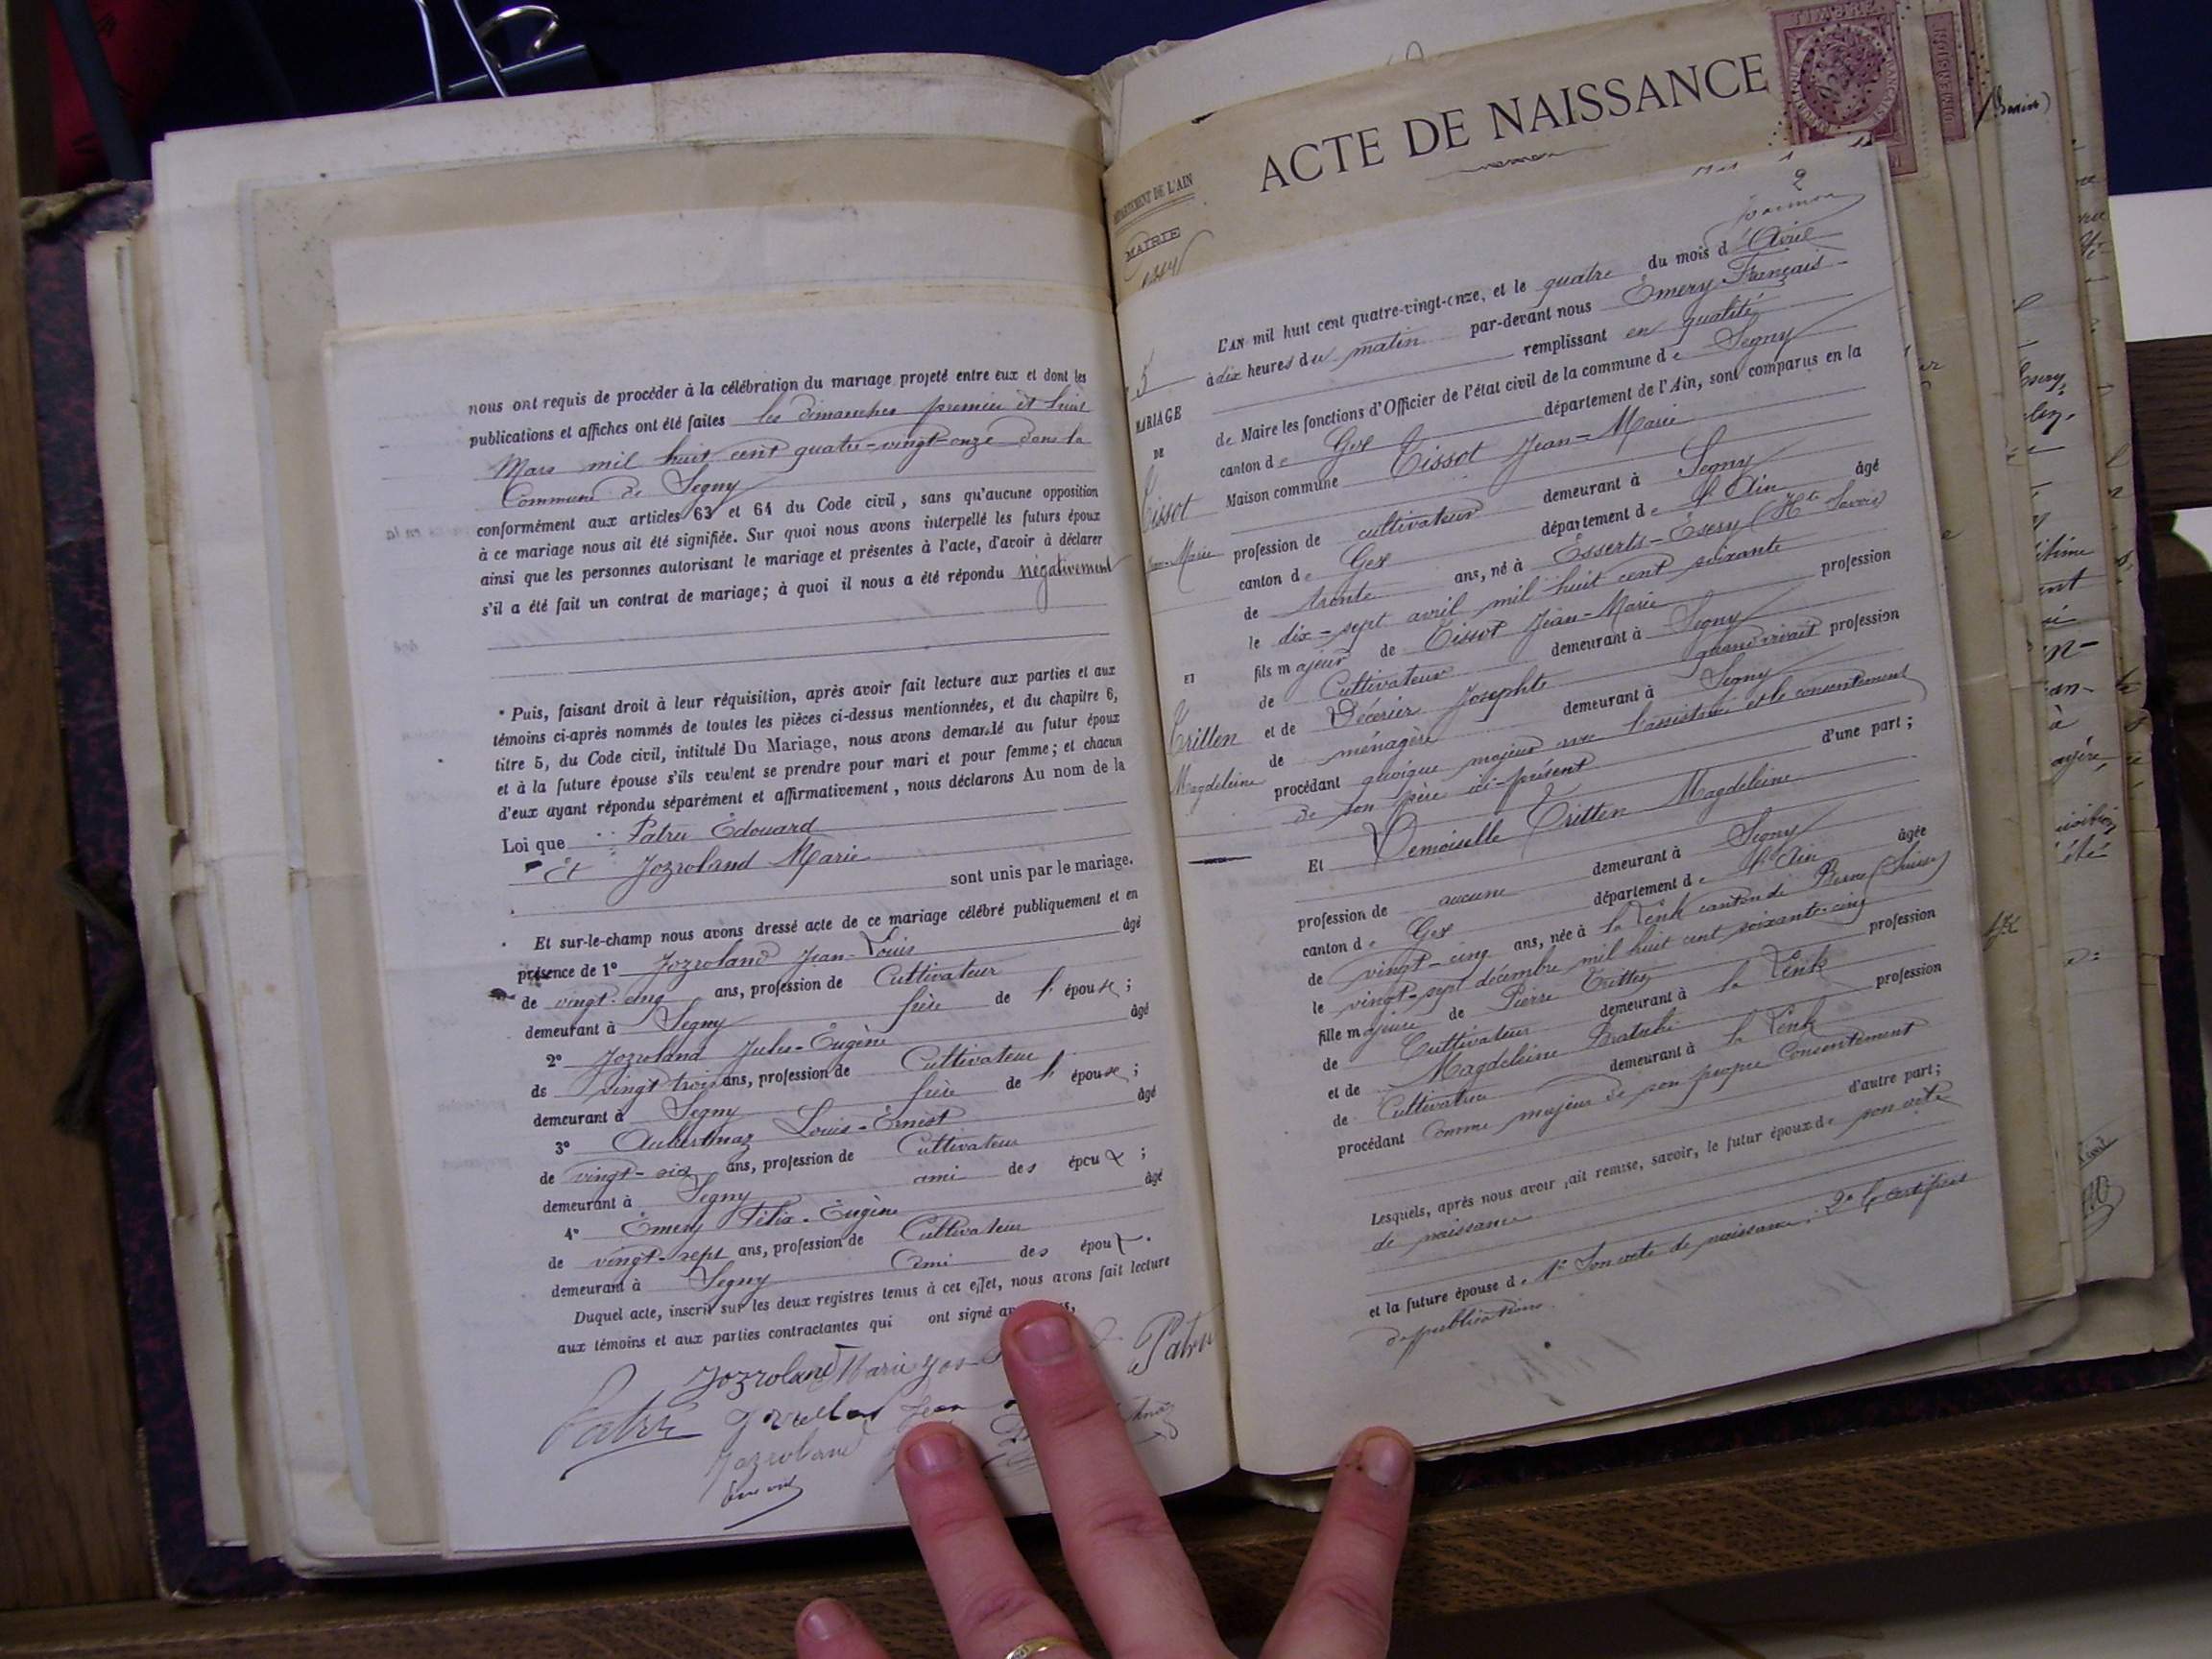 nous ont requis de procéder à la célébration du mariage projeté entre eux et dont les
publications et affiches ont été faites les dimanches premier et huit
Mars mil huit cent quatre-vingt-onze dans la
Commune de Segny
conformément aux articles 63 et 64 du Code civil, sans qu'aucune opposition
à ce mariage nous ait été signifiée. Sur quoi nous avons interpellé les futurs époux
ainsi que les personnes autorisant le mariage et présentes à l'acte, d'avoir à déclarer
s'il a été fait un contrat de mariage; à quoi il nous a été répondu négativement
Puis, faisant droit à leur réquisition, après avoir fait lecture aux parties et aux
témoins ci-après nommés de toutes les pièces ci-dessus mentionnées, et du chapitre 6,
titre 5, du Code civil, intitulé Du Mariage, nous avons demandé au futur époux
et à la future épouse s'ils veulent se prendre pour mari et pour femme; et chacun
d'eux ayant répondu séparément et affirmativement, nous déclarons Au nom de la
Loi que Patru Édouard
Et Jozroland Marie
sont unis par le mariage.
Et sur-le-champ nous avons dressé acte de ce mariage célébré publiquement et en
présence de 1° Jozroland Jean-Louis âgé
de vingt-cinq ans, profession de Cultivateur
demeurant à Segny frère de l'épouse;
2° Jozroland Jules-Eugène âgé
de vingt trois ans, profession de Cultivateur
demeurant à Segny frère de l'épouse;
3° Louis-Ernest âgé
de vingt-six ans, profession de Cultivateur
demeurant à Segny ami des époux;
4° Émery Félix-Eugène âgé
de vingt-sept ans, profession de Cultivateur
demeurant à Segny Ami des époux.
Duquel acte, inscrit sur les deux registres tenus à cet effet, nous avons fait lecture
aux témoins et aux parties contractantes qui ont signé
Jozroland Marie Patru
Patru Jean
Jozroland
DÉPARTEMENT DE L'AIN
MAIRIE
ACTE DE NAISSANCE
TIMBRE
5
MARIAGE
DE
Tissot
Jean-Marie
ET
Tritten
Magdeleine
L'AN mil huit cent quatre-vingt-onze, et le quatre du mois d'Avril
à dix heures du matin par-devant nous Émery Français
remplissant en qualité
de Maire les fonctions d'Officier de l'état civil de la commune de Segny
canton de Gex département de l'Ain, sont comparus en la
Maison commune Tissot Jean-Marie
profession de cultivateur demeurant à Segny
canton de Gex département de l'Ain âgé
de trente ans, né à Esserts-Esery (Hte Savoie)
le dix-sept avril mil huit cent soixante
fils majeur de Tissot Jean-Marie profession
de Cultivateur demeurant à Segny
et de Josephte quand vivait profession
de ménagère demeurant à Segny
procédant quoique majeur avec l'assistance et le consentement
de son père ici-présent d'une part;
Et Demoiselle Tritten Magdeleine
profession de aucune demeurant à Segny
canton de Gex département de l'Ain âgée
de vingt-cinq ans, née à la Lenk canton de Berne (Suisse)
le vingt-sept décembre mil huit cent soixante-cinq
fille majeure de Pierre Tritten profession
de Cultivateur demeurant à la Lenk
et de Magdeleine profession
de Cultivatrice demeurant à la Lenk
procédant Comme majeur de son propre Consentement
d'autre part;
Lesquels, après nous avoir fait remise, savoir, le futur époux de son acte
de naissance
et la future épouse de 1° Son acte de naissance; 2° le certificat
de publication.